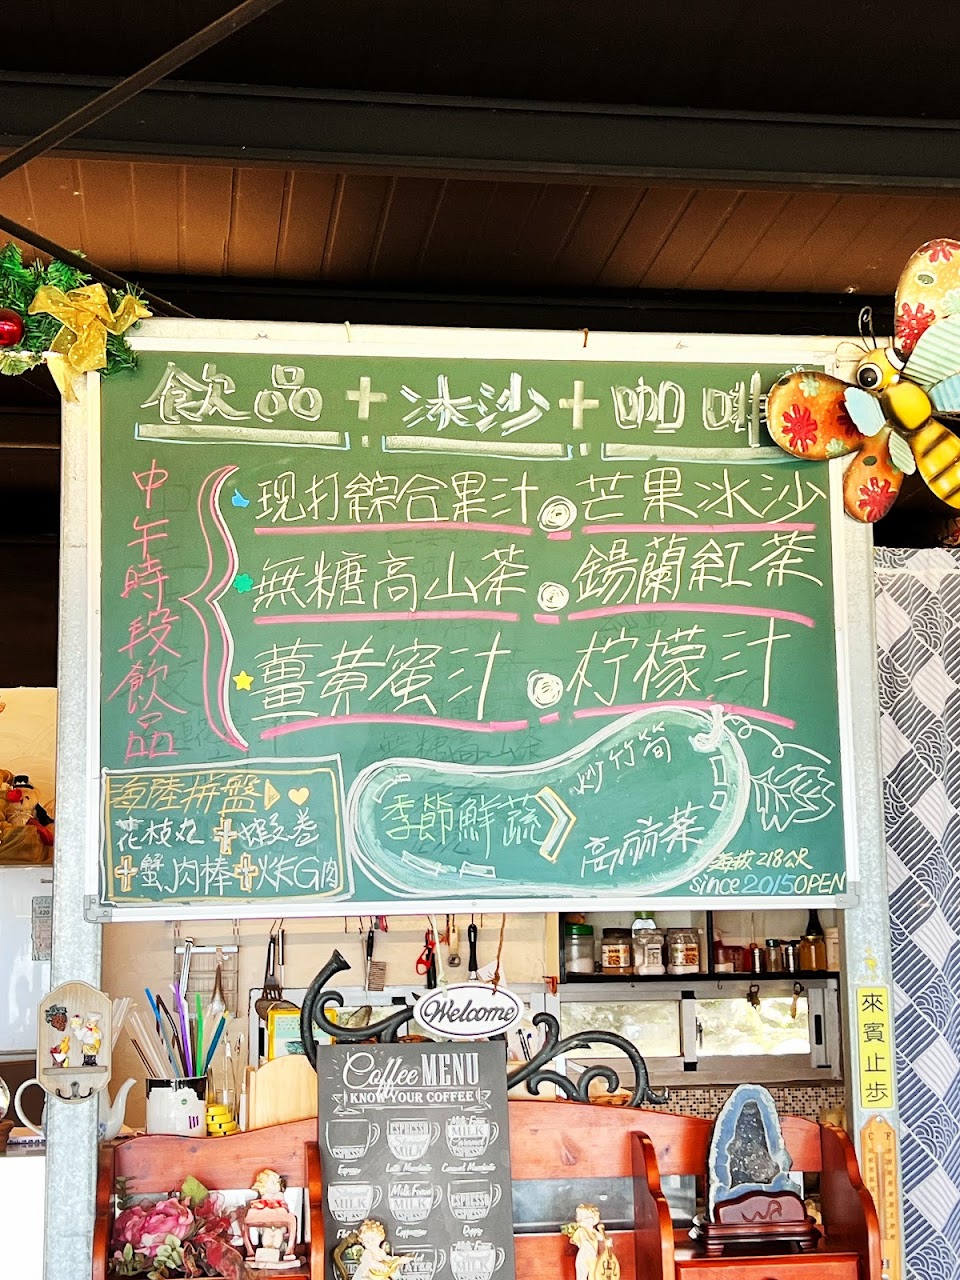 飲品+冰沙+咖啡
中午時段飲品
现打綜合果汁。芒果冰沙
無糖高山茶。鍚蘭紅茶
薑黄蜜汁。柠檬汁
海陸拼盤
花枝丸+蝦卷
+蟹肉棒+炸G肉
季節鮮蔬
炒竹筍
高丽菜
海拔218公尺
since2015OPEN
Welcome
Coffee MENU
KNOW YOUR COFFEE
ESPRESSO
MILK
Espresso
Latte Macchiato
Caramel Macchiato
MILK
Milk Foam
MILK
ESPRESSO
來賓止步